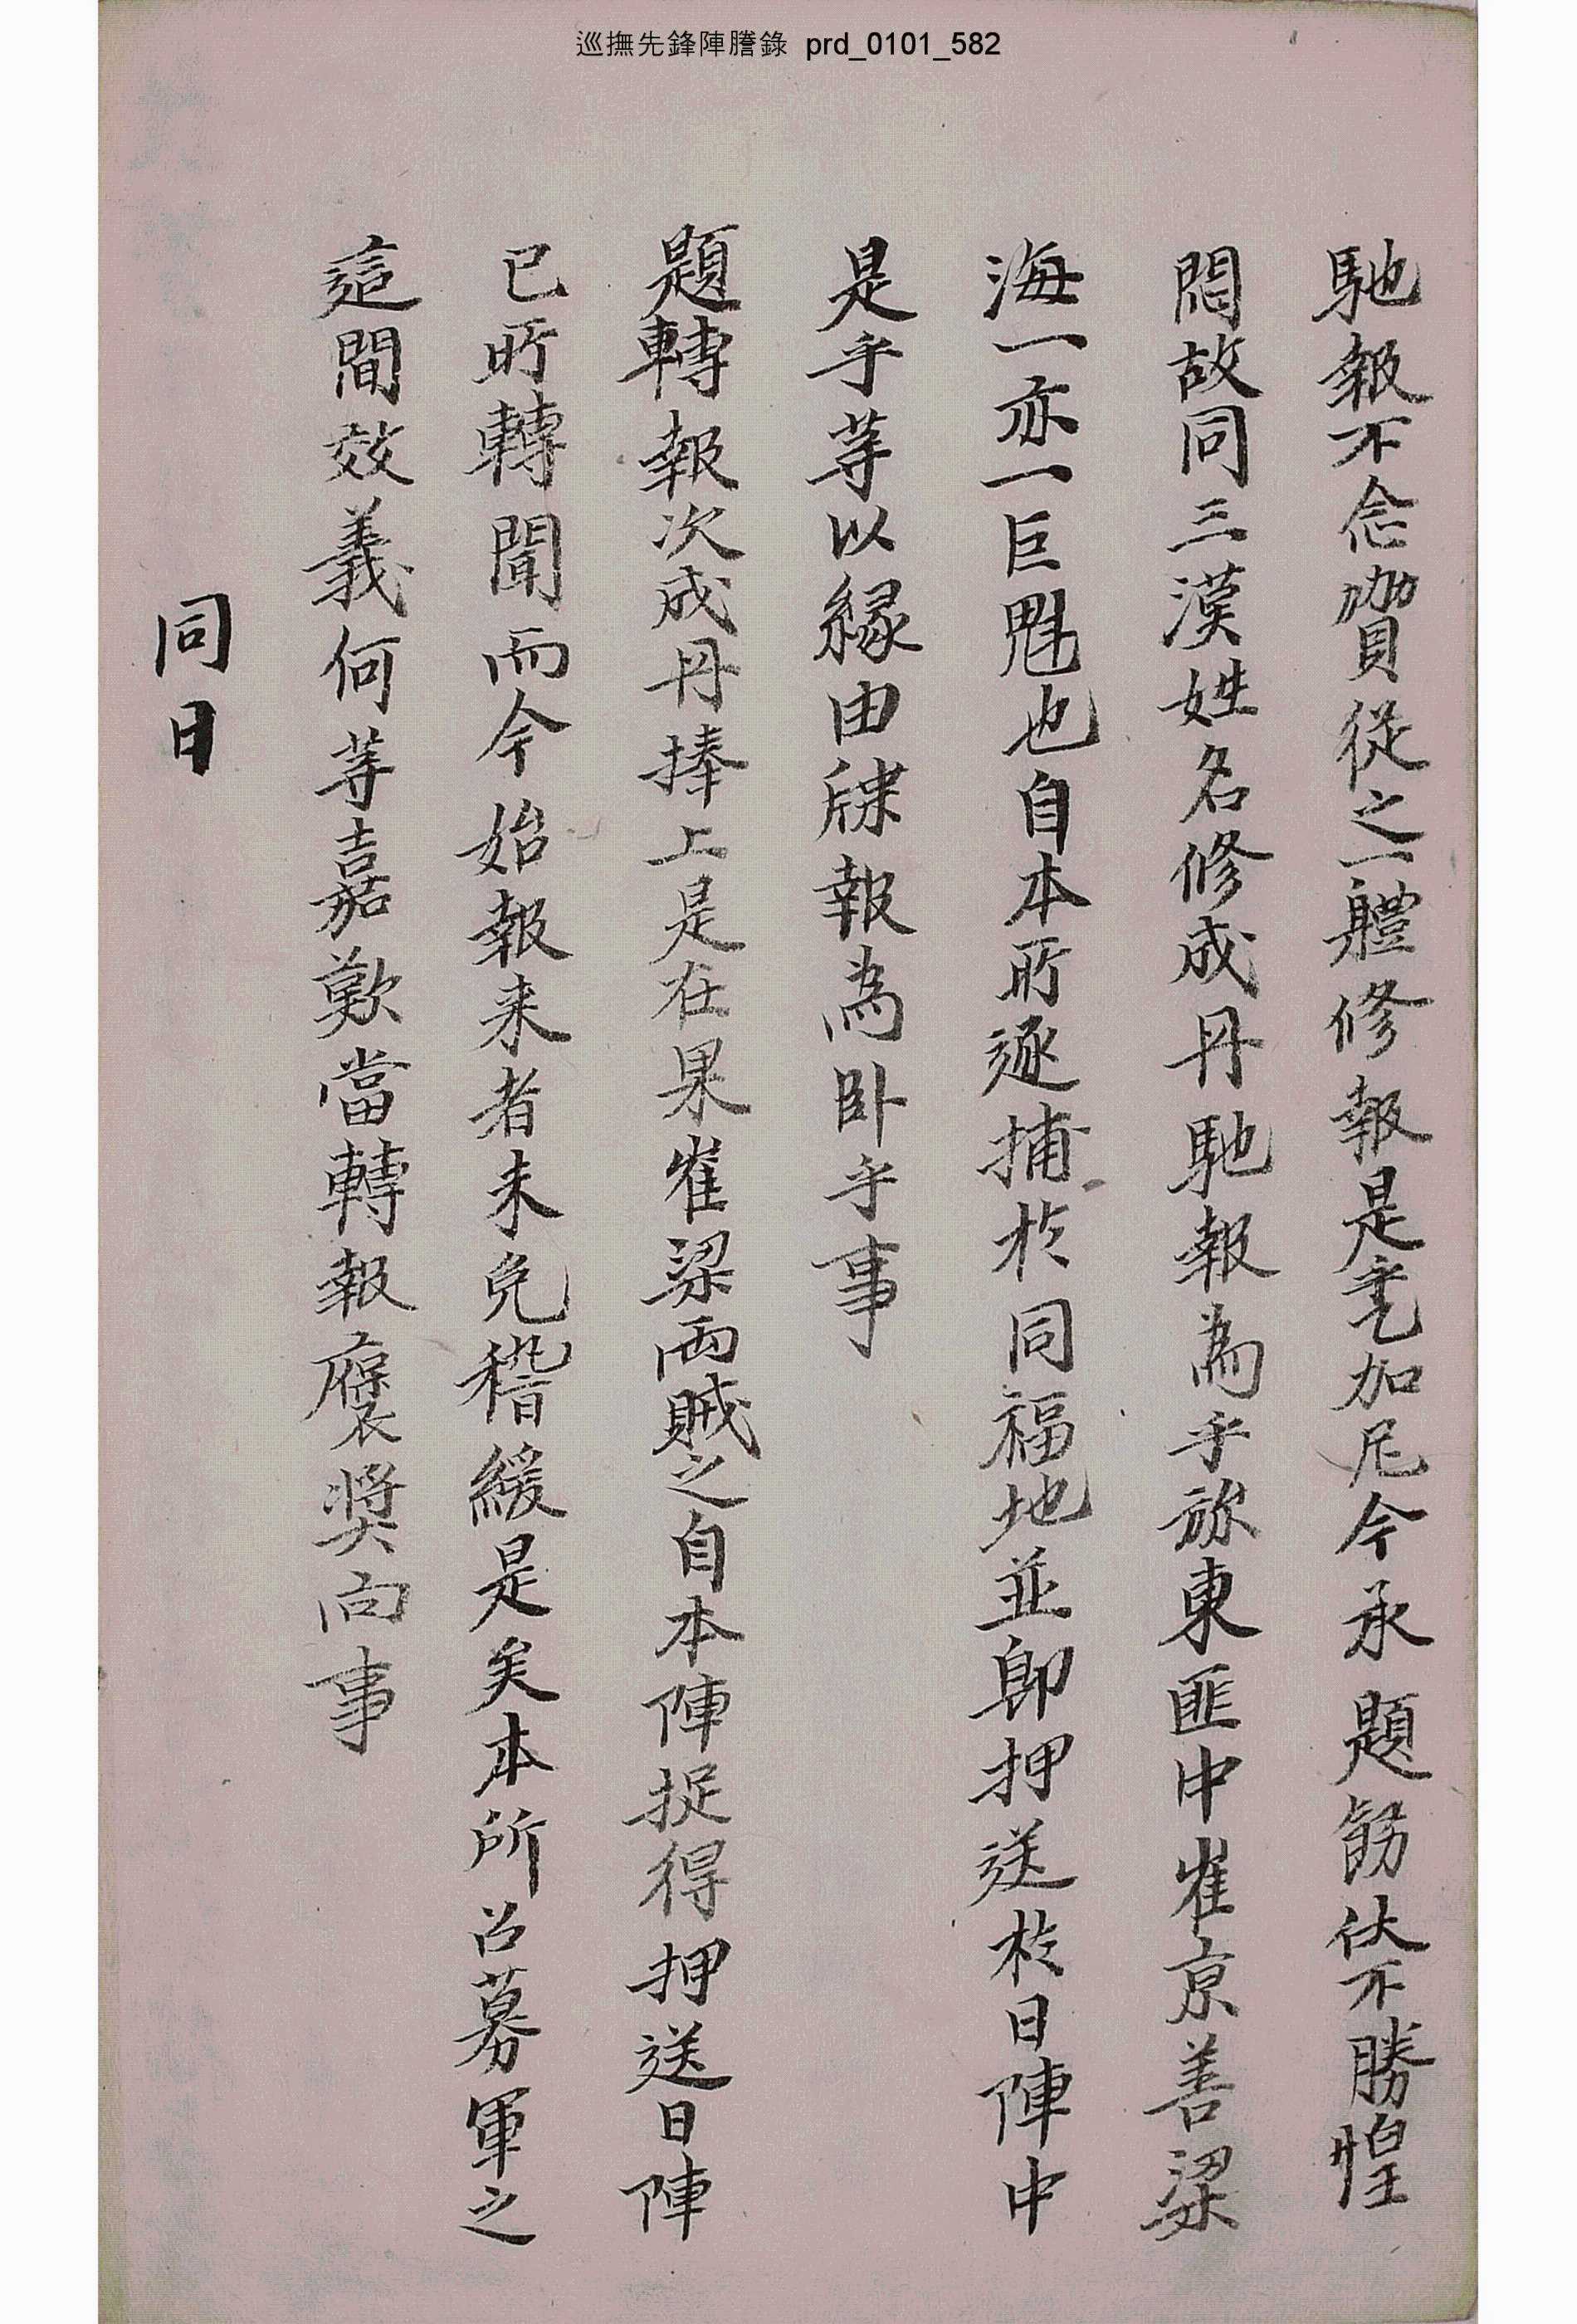 巡撫先鋒陣謄錄 prd_0101_582
馳報不念嘖從之一軆修報是乎加尼今承題飭伏不勝惶
悶故同三漢姓名修成冊馳報爲乎旀東匪中崔京善梁
海一亦一巨魁也自本所逐捕於同福地並卽押送於日陣中
是乎等以緣由牒報爲臥乎事
題轉報次成冊捧上是在果崔梁兩賊之自本陣捉得押送日陣
已所轉聞而今始報来者未免稽緩是矣本所召募軍之
這間效義何等嘉歎當轉報褒奬向事
同日